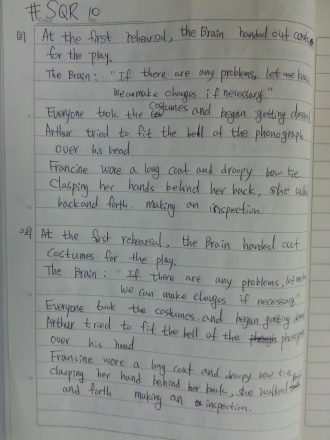 # SQR 10
회) At the first rehearsal, the Brain handed out
for the play.
The Brain: "If there are any problems, let me
We can make changes if necessary."
Everyone took the costumes and began getting dressed
Arthur tried to fit the bell of the phonograph
over his head
Francine wore a long coat and droopy bow tie
Clasping her hands behind her back, she
back and forth. making an inspection.
2회) At the first rehearsal, the Brain handed out
Coctumes for the play.
The Brain: "If there are any problems,
we can make changes if necessary"
Everyone took the costumes and began getting
Arthur tried to fit the bell of the
over his head
Francine wore a long coat and droopy bow tie
clasping her hand behind her back, she walked
and forth making an inspection.